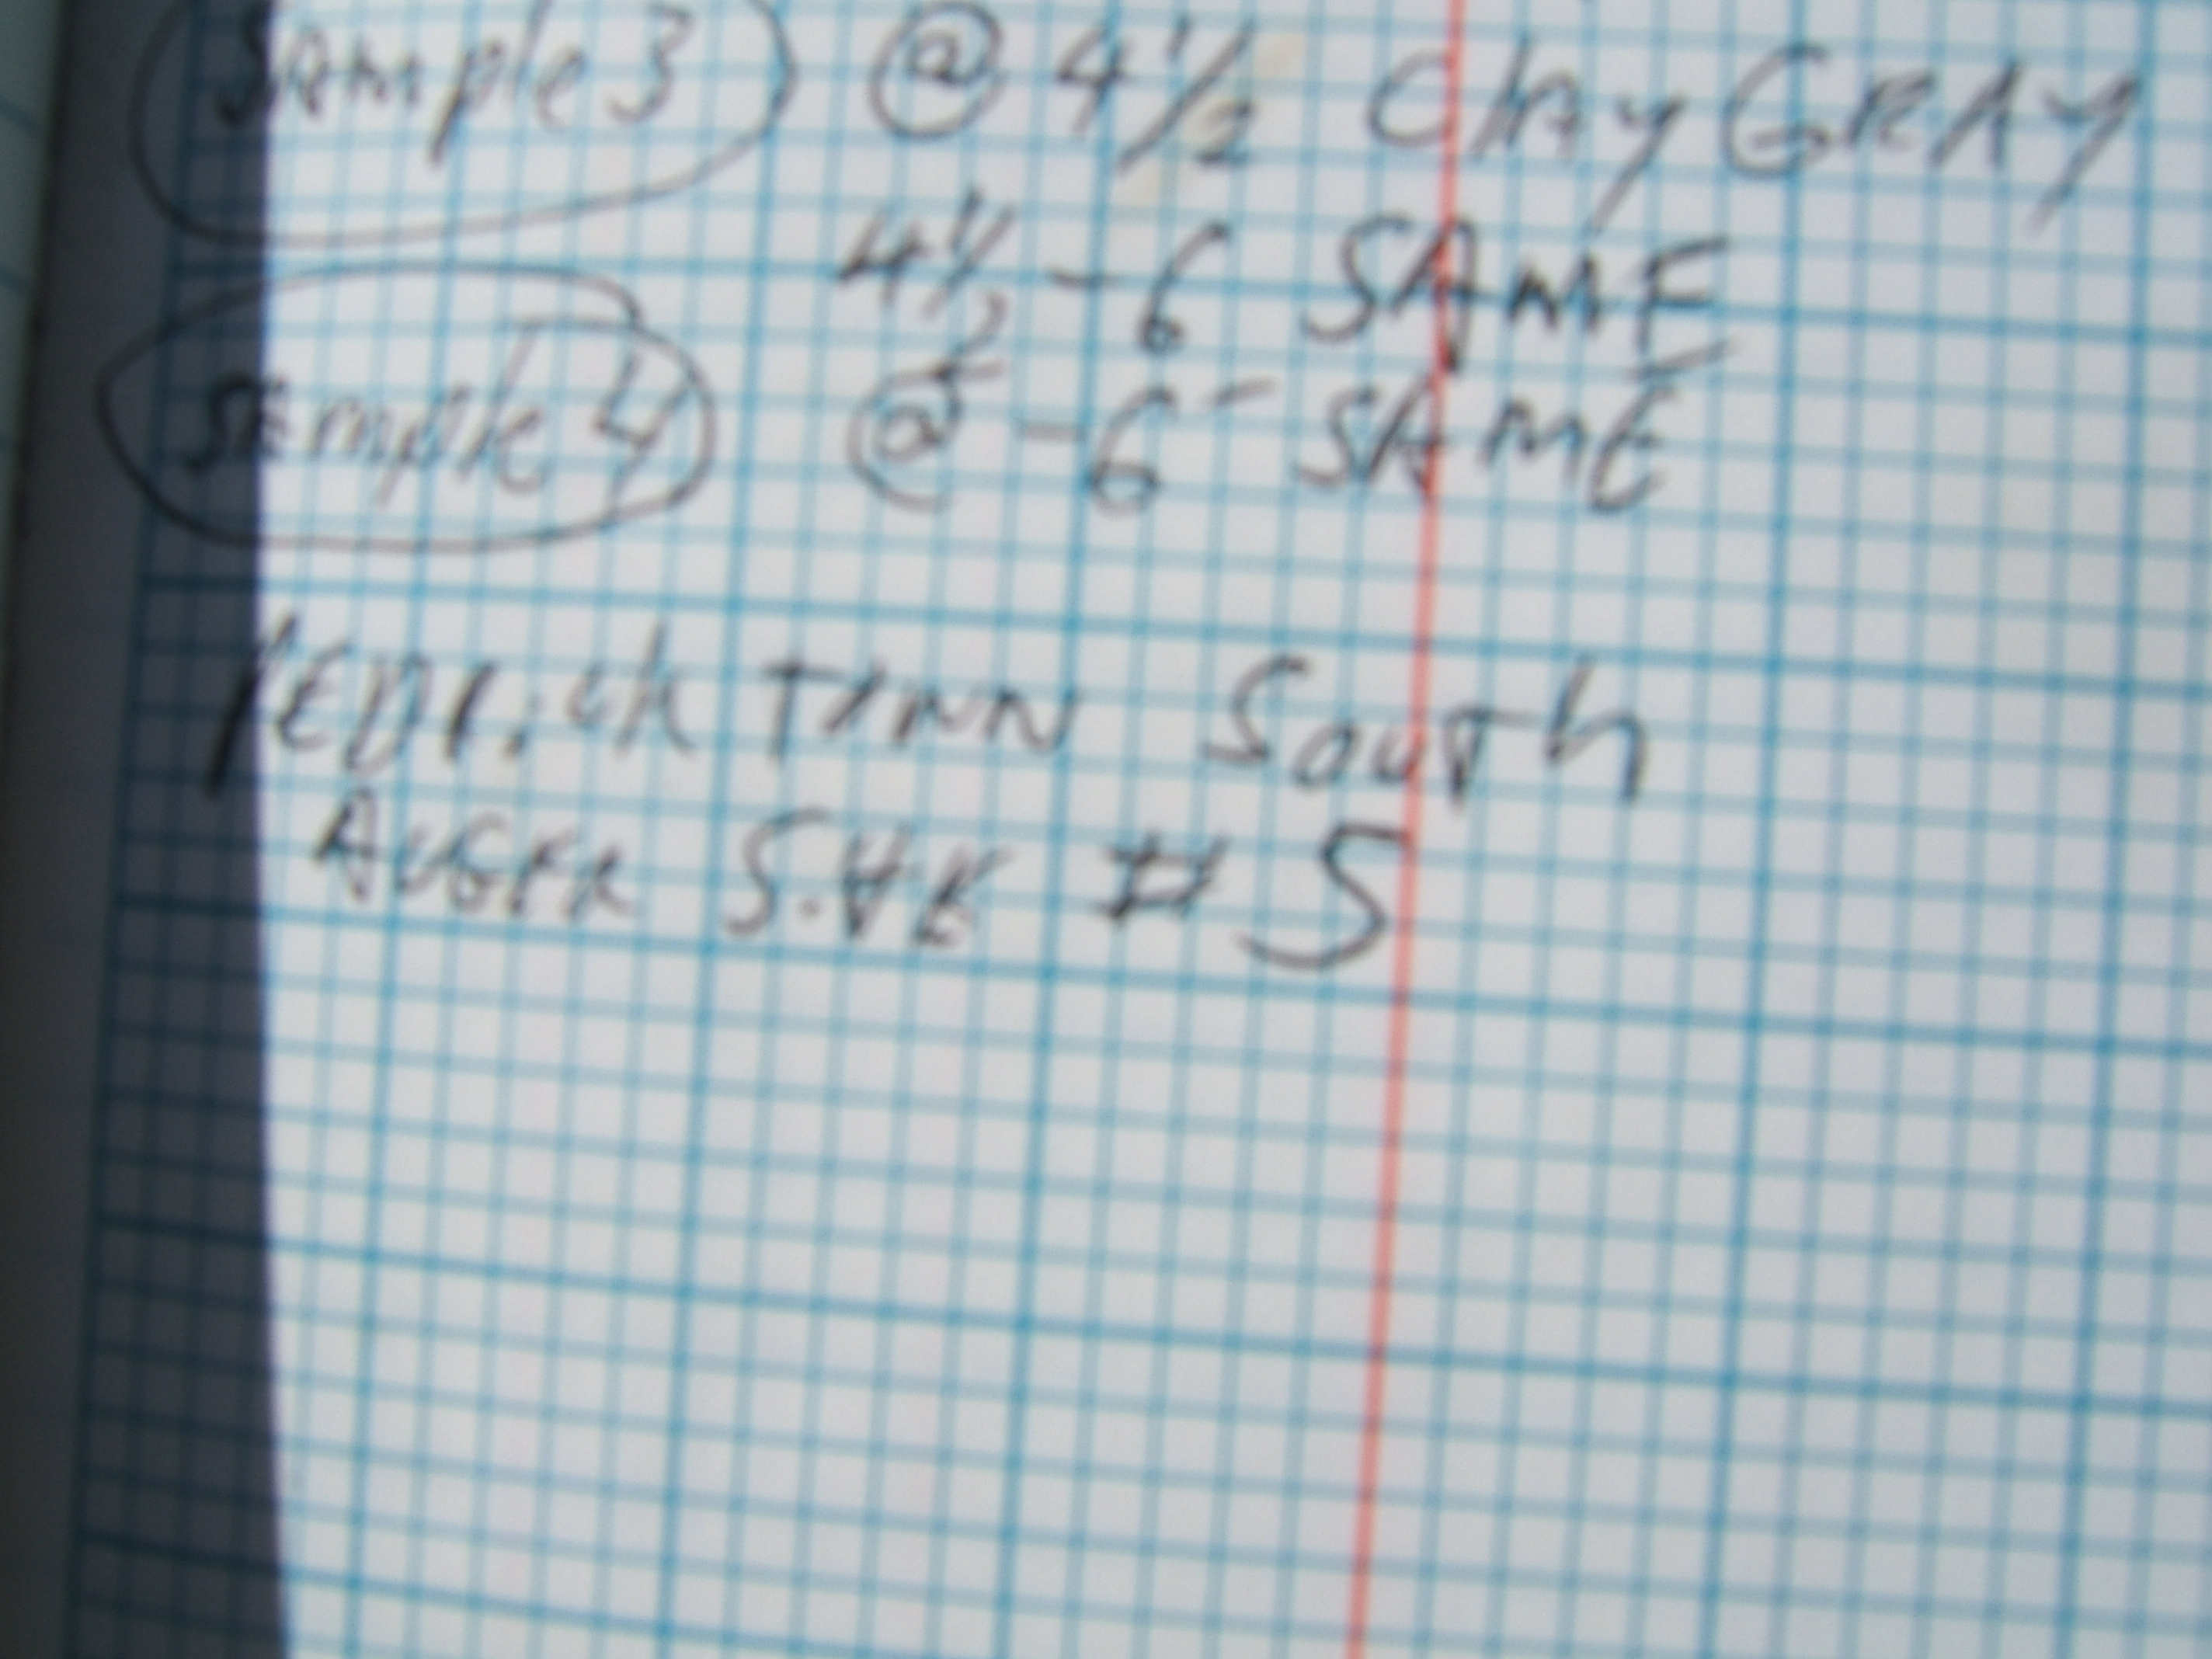 Sample 3 @ 4 1/2 Clay GRAY
4 1/2 - 6 SAME
Sample 4 @ - 6' SAME
PEDrick TOWN South
AUGER # 5